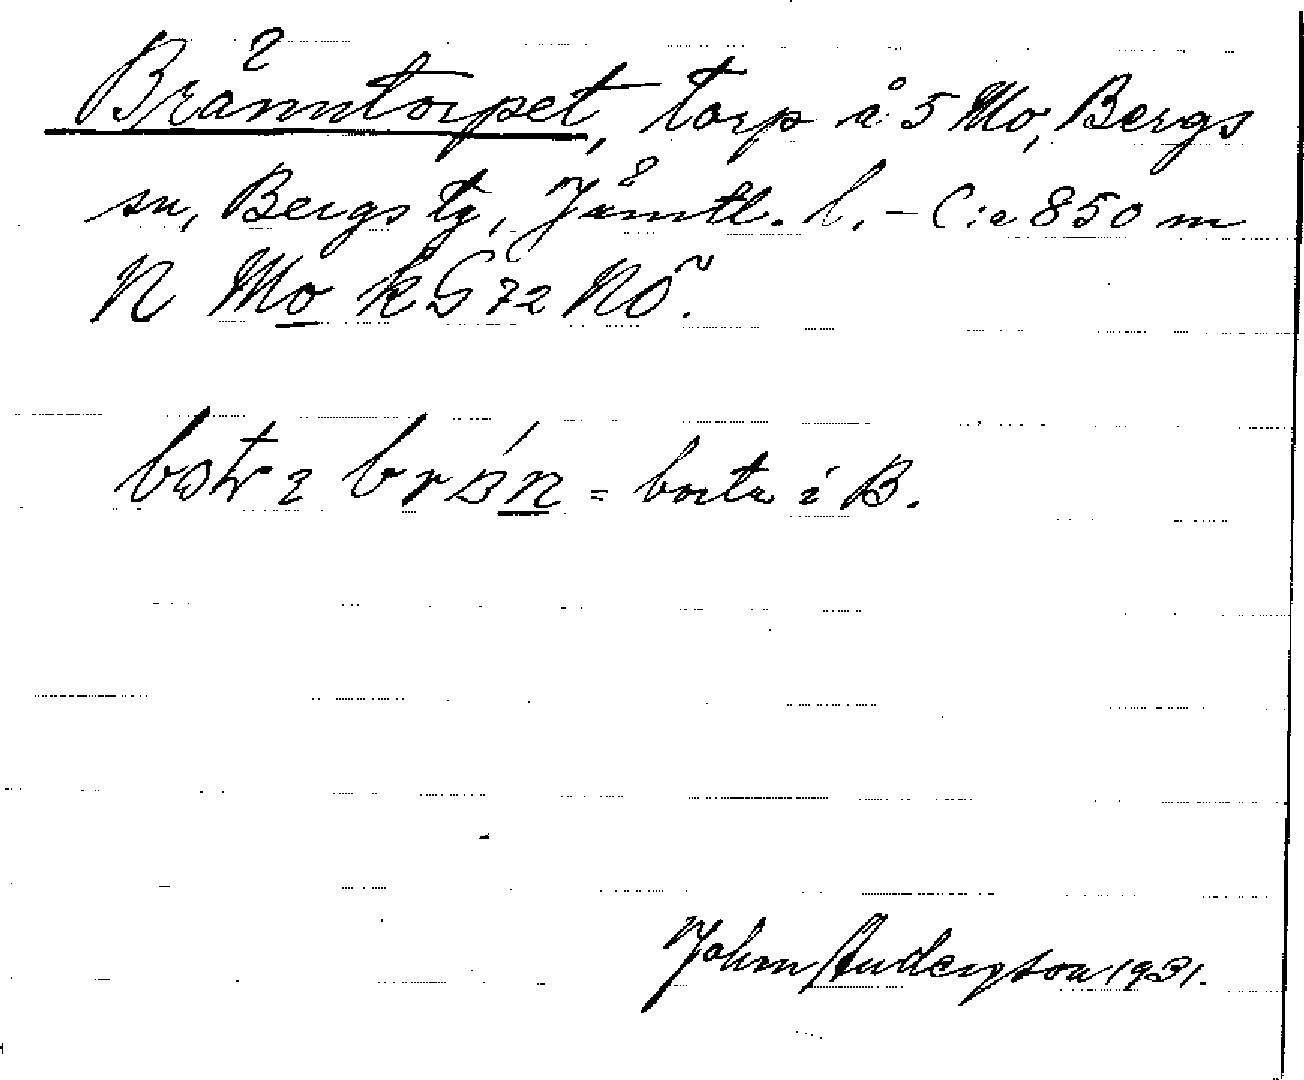 Bränntorpet, torp å 5 Mo, Bergs
sn, Bergs tg, Jämtl. l. – C:a 850 m
N Mo k G 72 NÖ.
= borta i B.
John Anderson 1931.